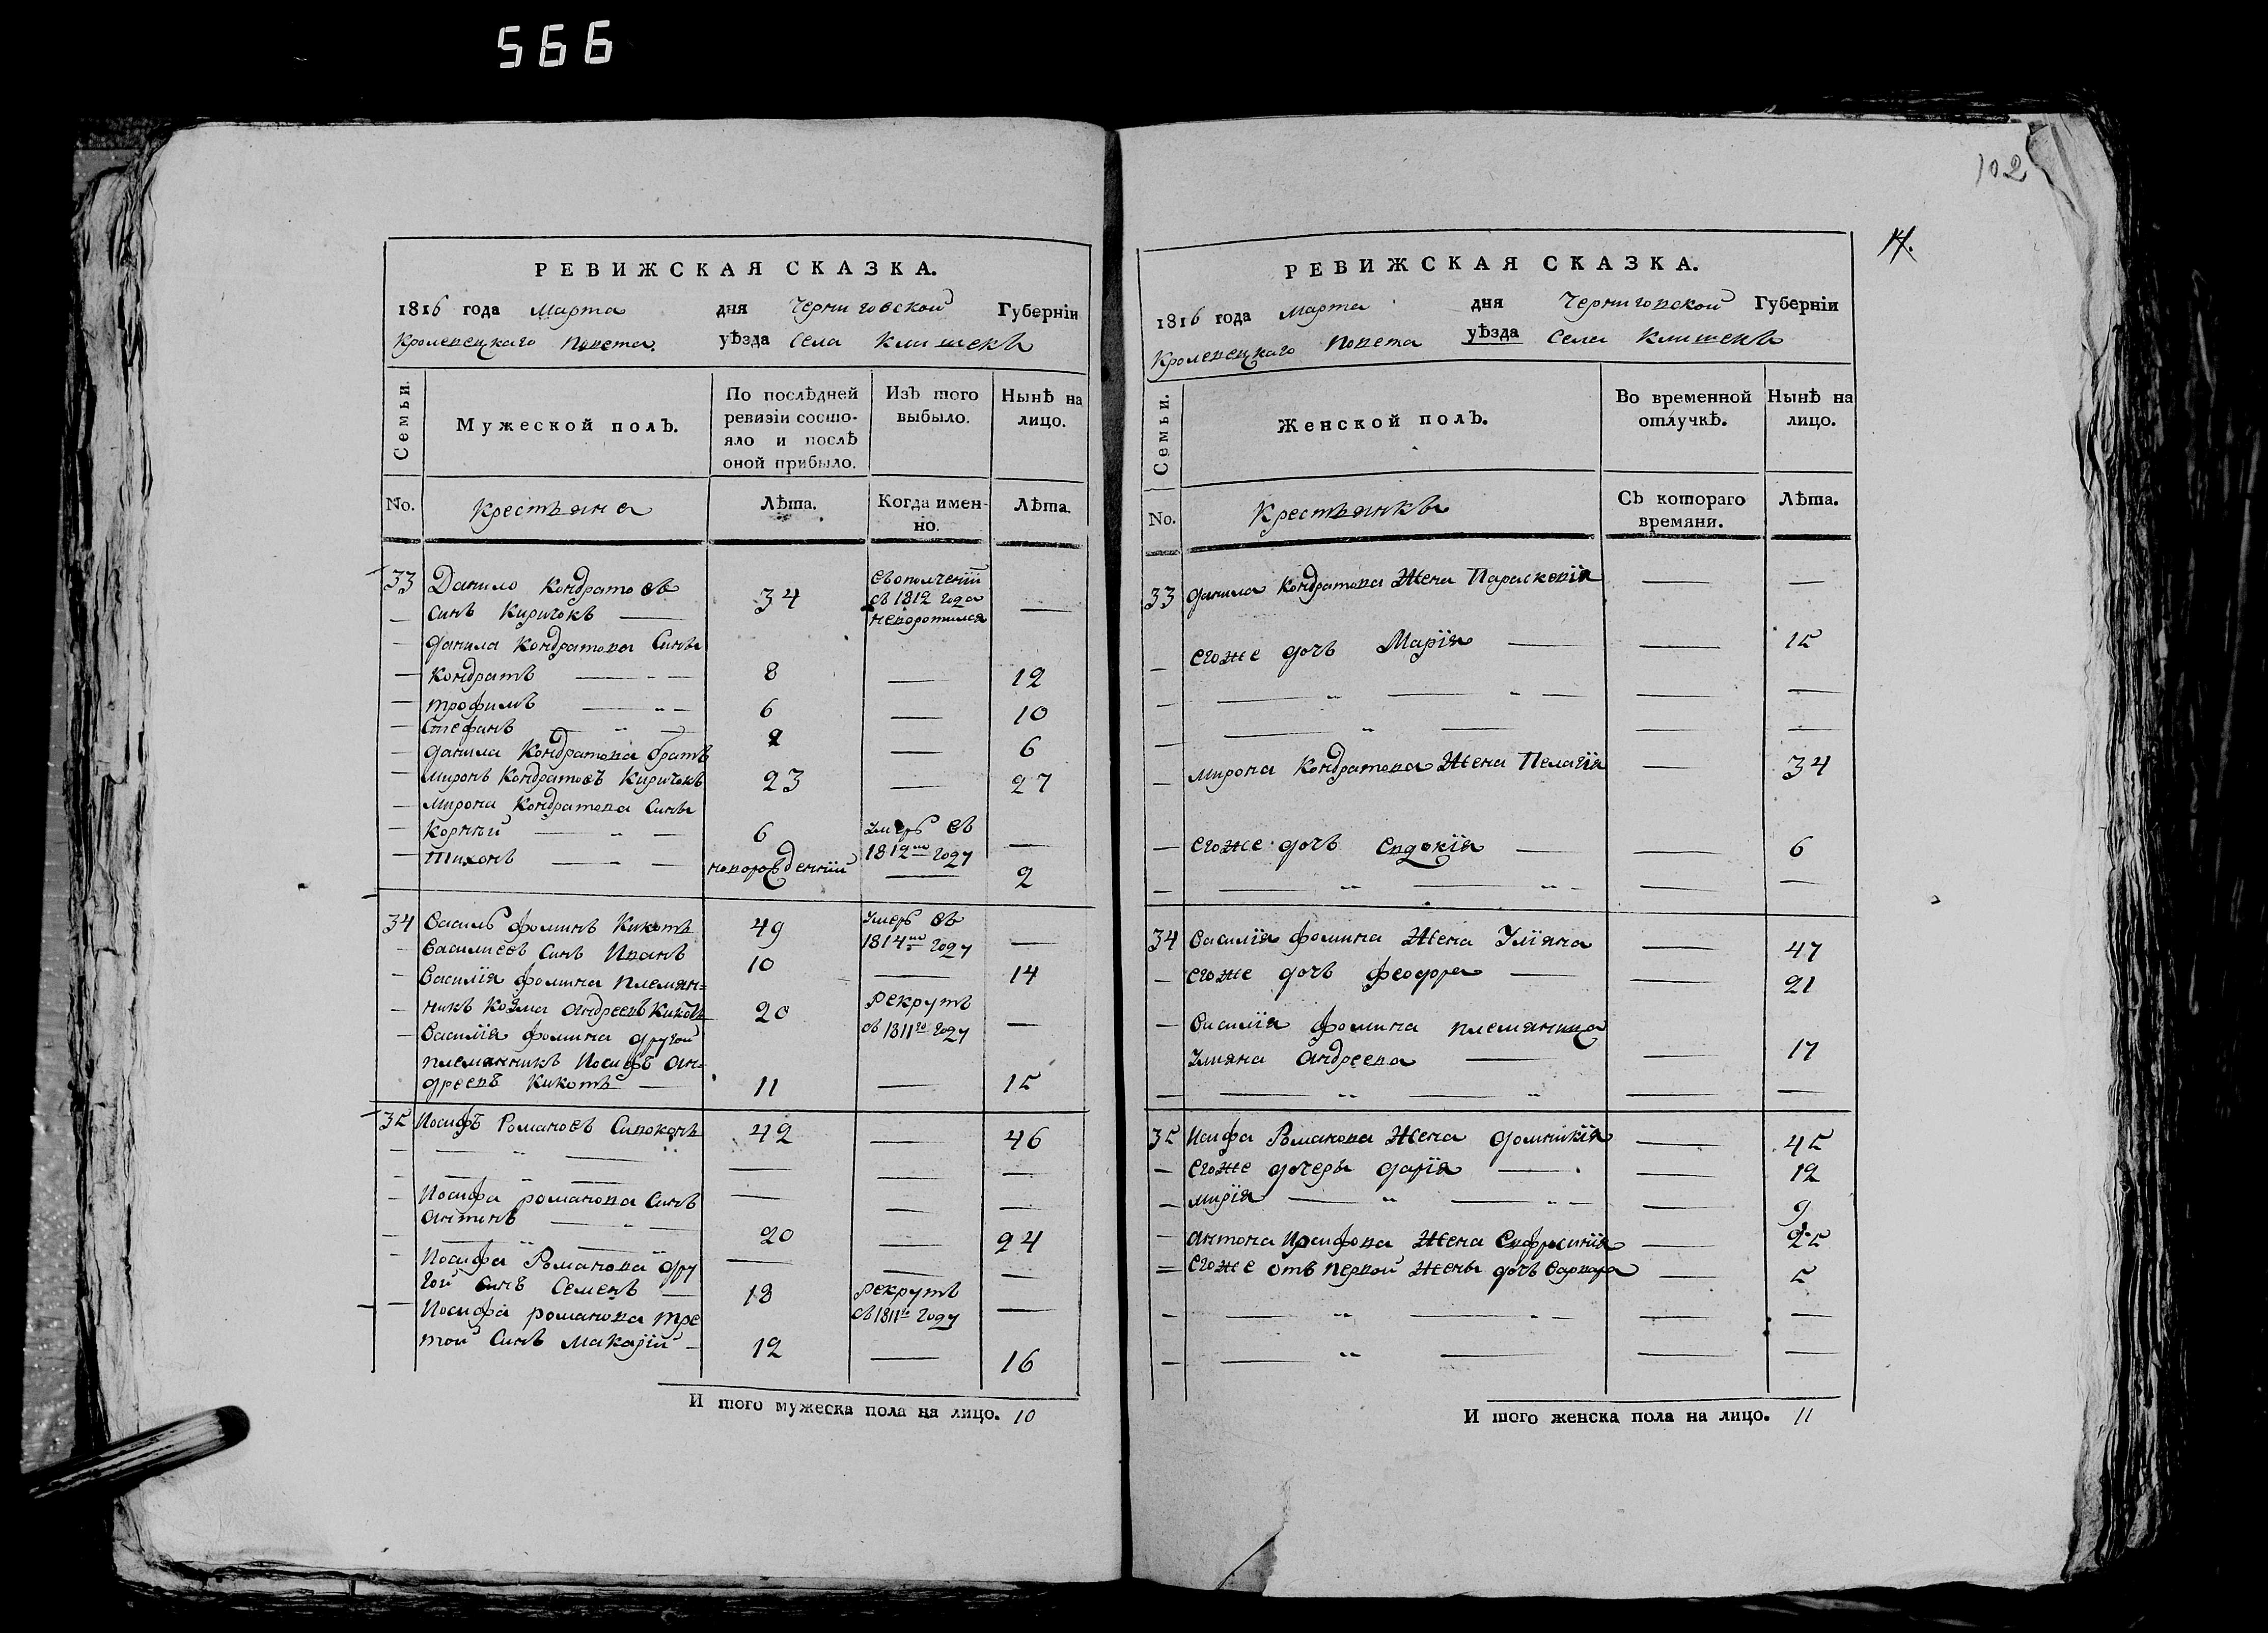 566
102
14.
РЕВИЖСКАЯ СКАЗКА.
1816 года Марта дня Черниговской Губерніи
Кролевецкаго Повета. уѣзда Села Клишекъ
Семьи.
Мужеской полЪ.
По послѣдней ревизіи состо-
яло и послѣ
оной прибыло.
ИзЪ того выбыло.
НынѣЪ на лицо.
No.
Крестьяне
Лѣта.
Когда имен-
но.
Лѣта.
33 Данило Кондратовъ
синъ Киричокъ — 34 въ ополченіи
съ 1812 года
неворотился —
— Данила Кондратова Сины
— Кондратъ — 8 — 12
— Трофимъ — 6 — 10
— Стефанъ — 2 — 6
— Данила Кондратова братъ
— Миронъ Кондратовъ Киричокъ 23 — 27
— Мирона Кондратова Сины
— Корній — 6 Умеръ въ
1812мъ году —
— Тихонъ — новорожденній — 2
34 Василь Фоминъ Кикоть 49 Умеръ въ
1814мъ году —
— Василиевъ Синъ Иванъ 10 — 14
— Василія Фомина племян=
— никъ Козма Андреевъ Кикоть 20 Рекрутъ
въ 1811го году —
— Василія Фомина другой
племянникъ Иосифъ Ан=
дреевъ Кикоть — 11 — 15
35 Иосифъ Романовъ Сивоконь 42 — 46
— Иосифа романова Синъ
Антинъ — 20 — 24
— Иосифа Романова дру
гой синъ Семенъ — 18 рекрутъ
въ 1811го году —
— Иосифа романова тре
той Синъ Макарій — 12 — 16
И того мужеска пола на лицо. 10
РЕВИЖСКАЯ СКАЗКА.
1816 года Марта дня Черниговской Губерніи
Кролевецкаго Повета уѣзда Села Клишекъ
Семьи.
Женской полЪ.
Во временной
отлучкѣ.
Нынѣ на
лицо.
No.
Крестьянкы
СЪ котораго
времяни.
Лѣта.
33 Данила Кондратова Жена Параскевія — —
— Егоже дочь Марія — — 15
— Мирона Кондратова Жена Пелагія — 34
— Егоже дочь Евдокія — — 6
34 Василія Фомина Жена Уліяна — 47
— Егоже дочь Феодора — — 21
— Василія Фомина племяница
Улияна Андреева — — 17
35 Исифа Романова Жена Домникія — 45
— Егоже дочеры Дарія — — 12
— Марія — — 9
— Антона Иосифова Жена Евфросинія — 25
= Егоже отъ первой жены дочь Варвара — 5
И того женска пола на лицо. 11